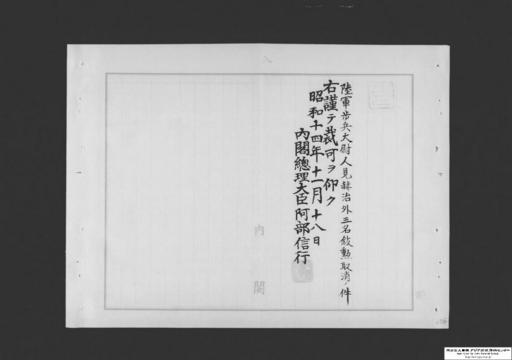 陸軍歩兵大尉人見緑治外三名叙勲取消ノ件
右謹テ裁可ヲ仰ク
昭和十四年十一月十八日
内閣總理大臣阿部信行
内閣